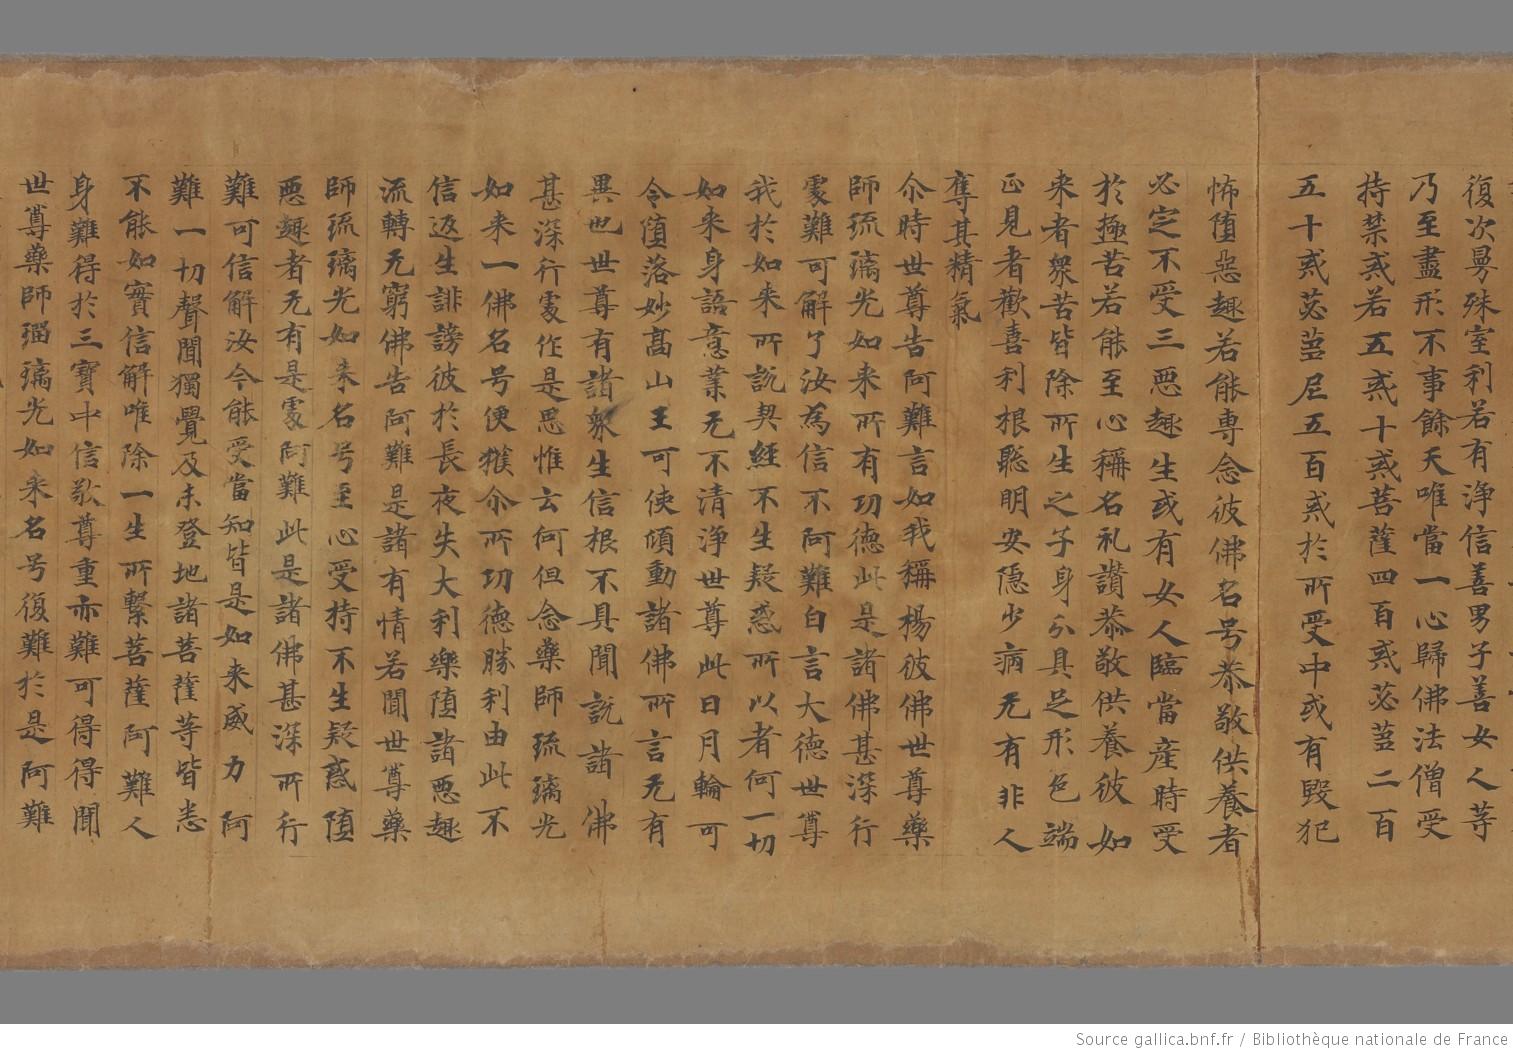 復次曼殊室利若有淨信善男子善女人等
乃至盡形不事餘天唯當一心歸佛法僧受
持禁戒若五戒十戒菩薩四百戒苾芻二百
五十戒苾芻尼五百戒於所受中或有毀犯
怖墮惡趣若能專念彼佛名号恭敬供養者
必定不受三惡趣生或有女人臨當產時受
於極苦若能至心稱名礼讚恭敬供養彼如
来者衆苦皆除所生之子身分具足形色端
正見者歡喜利根聡明安隱少病无有非人
奪其精氣
尒時世尊告阿難言如我稱楊彼佛世尊藥
師琉璃光如来所有功德此是諸佛甚深行
處難可解了汝為信不阿難白言大德世尊
我於如来所說契經不生疑惑所以者何一切
如来身語意業无不清淨世尊此日月輪可
令墮落妙髙山王可使傾動諸佛所言无有
異也世尊有諸衆生信根不具聞說諸佛
甚深行處作是思惟云何但念藥師琉璃光
如来一佛名号便獲尒所功德勝利由此不
信返生誹謗彼於長夜失大利樂墮諸惡趣
流轉无窮佛告阿難是諸有情若聞世尊藥
師琉璃光如来名号至心受持不生疑惑墮
惡趣者无有是處阿難此是諸佛甚深所行
難可信解汝今能受當知皆是如来威力阿
難一切聲聞獨覺及未登地諸菩薩等皆悉
不能如實信解唯除一生所繫菩薩阿難人
身難得於三寶中信敬尊重亦難可得得聞
世尊藥師瑠璃光如来名号復難於是阿難
Source gallica.bnf.fr / Bibliothèque nationale de France